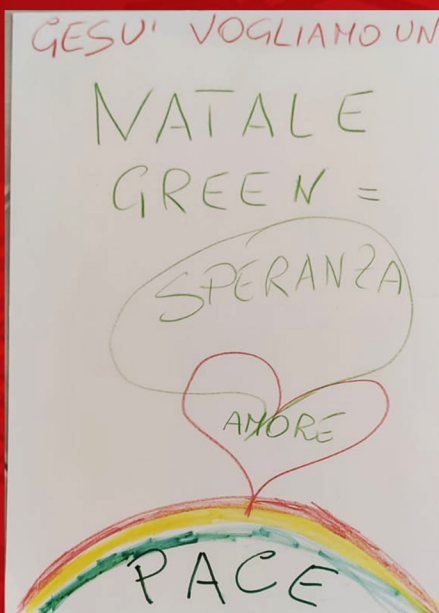 GESU' VOGLIAMO UN
NATALE
GREEN =
SPERANZA
AMORE
PACE